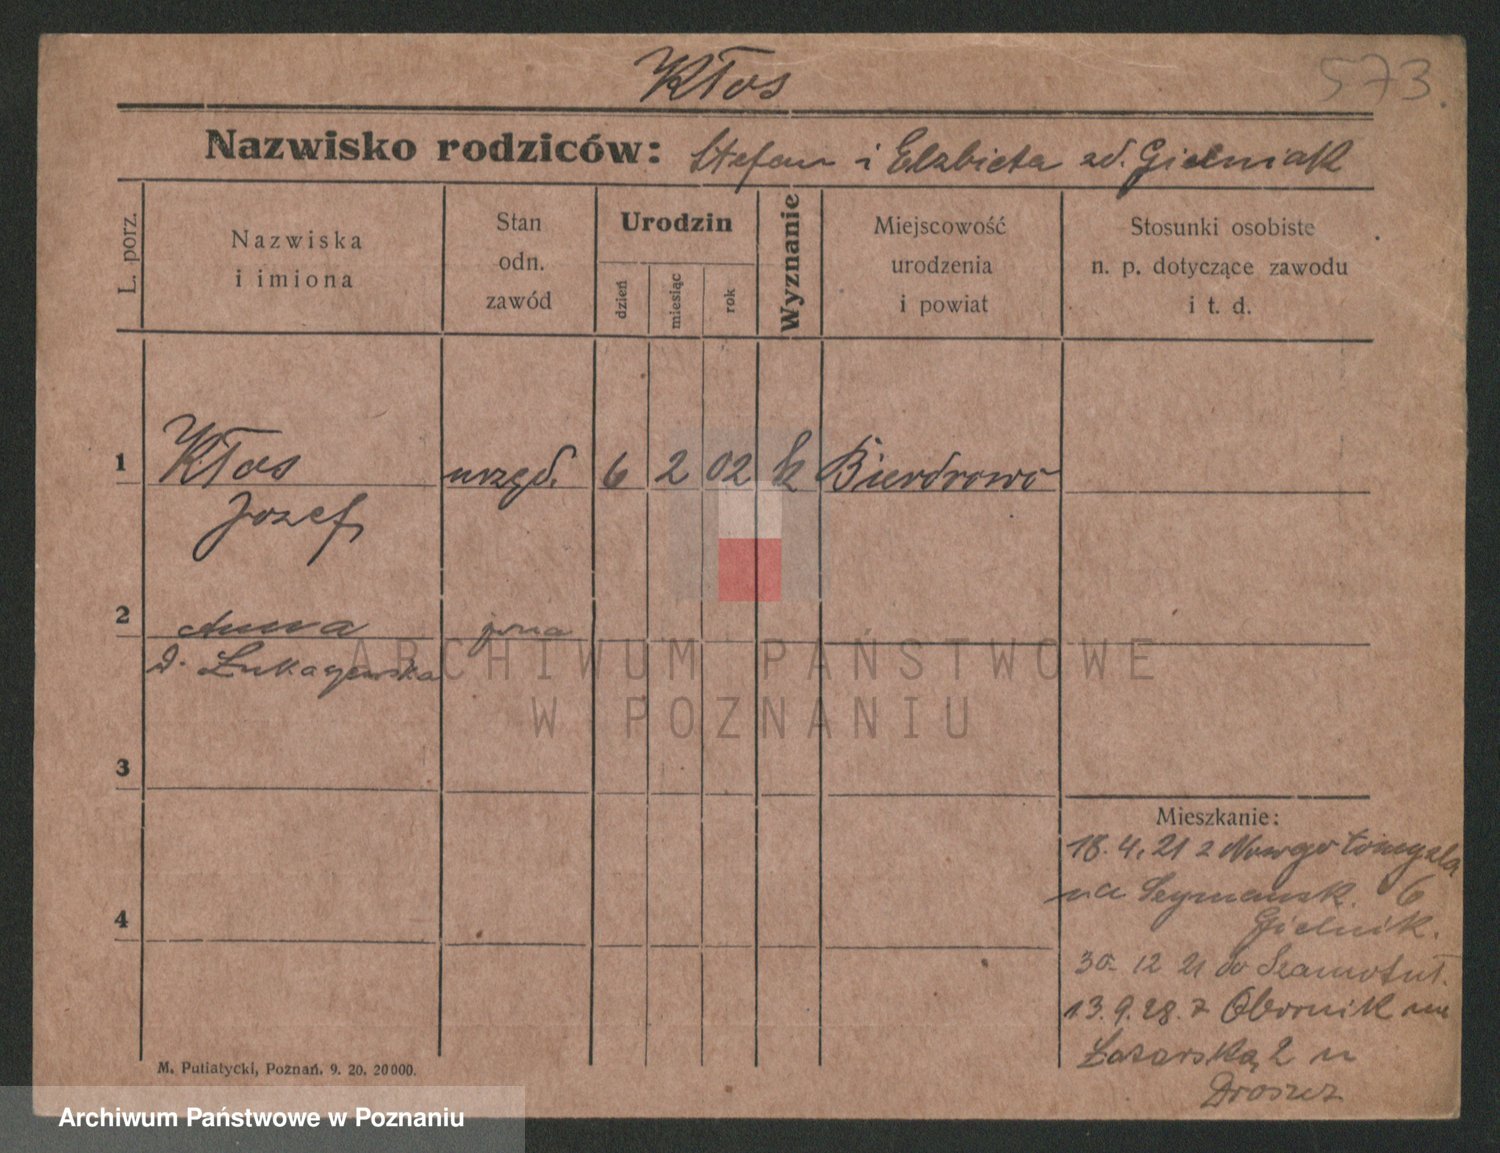 Kłos
573.
Nazwisko rodziców: Stefan i Elżbieta zd. Gielniak
L. porz.
Nazwiska
i imiona
Stan
odn.
zawód
Urodzin
dzień
miesiąc
rok
Wyznanie
Miejscowość
urodzenia
i powiat
Stosunki osobiste
n. p. dotyczące zawodu
i t. d.
1 Kłos urzęd. 6 2 02 k Bierdrowo
Jozef
2 Anna żona
d. Łukaszewska
3
4
Mieszkanie:
18. 4. 21 z Nowego Tomyzla
na Szymańsk. 6
Gielnik.
30 12 21 do Szamotuł.
13. 9. 28. z Obornik na
Łazarską 2 u
ARCHIWUM PAŃSTWOWE
W POZNANIU
M. Putiatycki, Poznań. 9. 20. 20000.
Archiwum Państwowe w Poznaniu